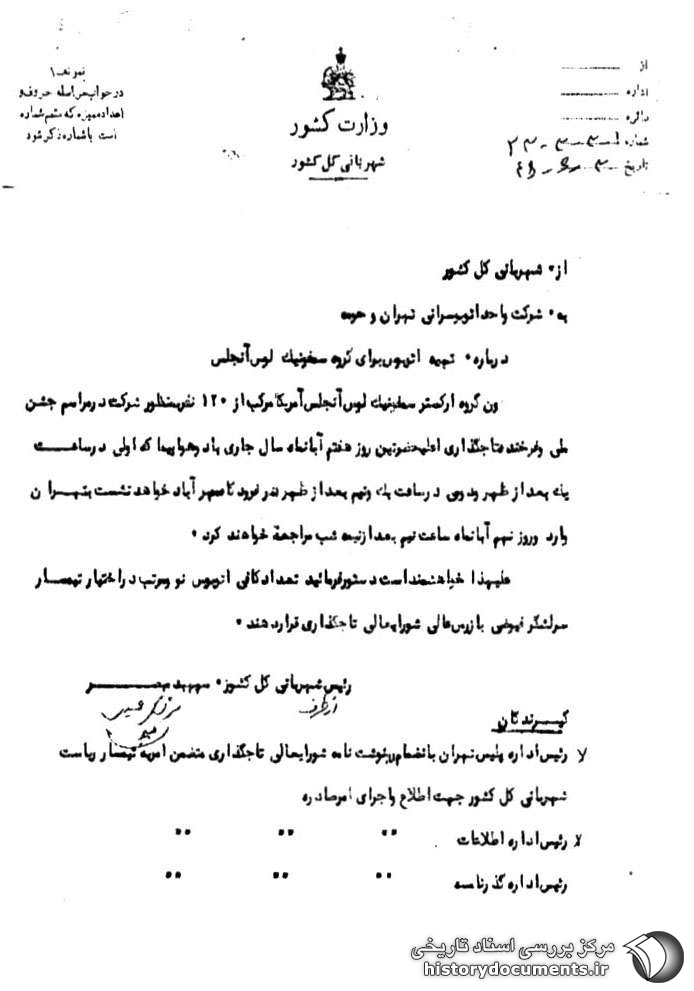 نمونه ۱
در جواب مراسله حروف و
اعداد ممیزه که متمم شماره
است با شماره ذکر شود
وزارت کشور
شهربانی کل کشور
از
اداره
دائره
شماره
تاریخ
از: شهربانی کل کشور
به: شرکت واحد اتوبوسرانی تهران و حومه
درباره: تهیه اتوبوس برای گروه سمفونیک لوس آنجلس
چون گروه ارکستر سمفونیک لوس آنجلس آمریکا مرکب از ۱۲۰ نفر بمنظور شرکت در مراسم جشن
ملی و فرخنده تاجگذاری اعلیحضرتین روز هفتم آبانماه سال جاری با دو هواپیما که اولی در ساعت
یک بعد از ظهر و دومی در ساعت یک و نیم بعد از ظهر در فرودگاه مهرآباد خواهد نشست بتهران
وارد و روز نهم آبانماه ساعت نیم بعد از نیمه شب مراجعه خواهند کرد.
علیهذا خواهشمند است دستور فرمائید تعداد کافی اتوبوس نو و مرتب در اختیار تیمسار
سرلشگر فیوضی بازرس عالی شورایعالی تاجگذاری قرار دهند.
رئیس شهربانی کل کشور: سپهبد مبصر
از طرف
گیرندگان
رئیس اداره پلیس تهران بانضمام رونوشت نامه شورایعالی تاجگذاری متضمن امریه تیمسار ریاست
شهربانی کل کشور جهت اطلاع و اجرای امر صادره
رئیس اداره اطلاعات " " "
رئیس اداره گذرنامه " " "
مرکز بررسی اسناد تاریخی
historydocuments.ir